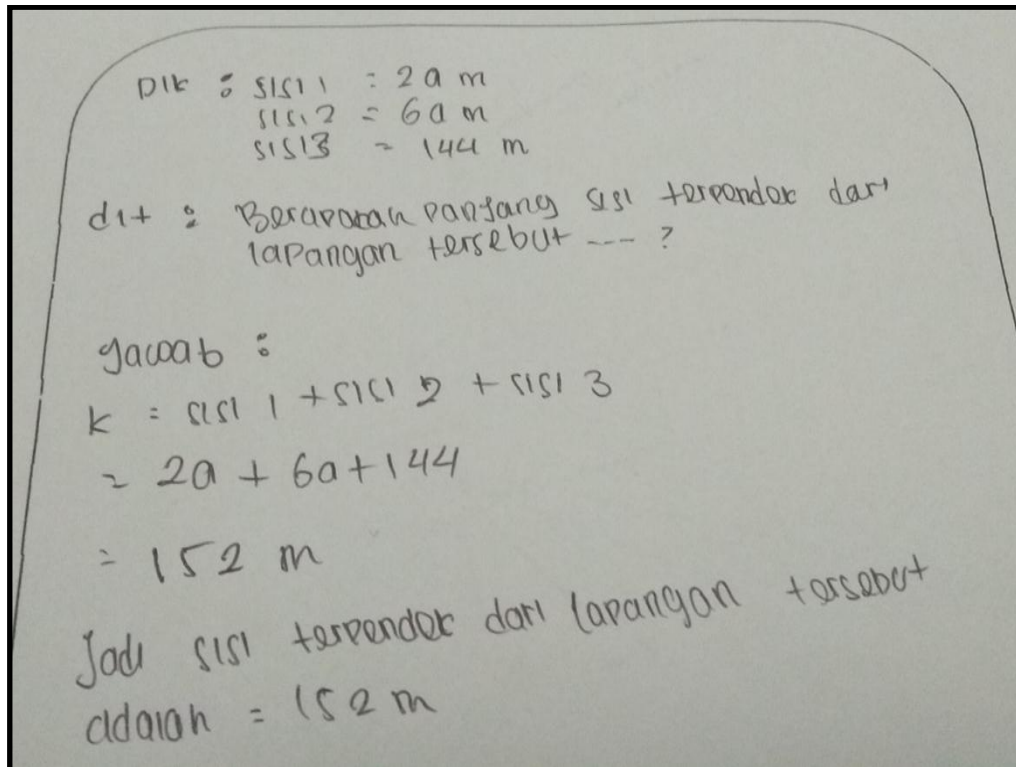 Dik : sisi 1 : 2a m
sisi 2 = 6a m
sisi 3 = 144 m
dit : Berapakah panjang sisi terpendek dari
lapangan tersebut ---- ?
Jawab :
k = sisi 1 + sisi 2 + sisi 3
= 2a + 6a + 144
= 152 m
Jadi sisi terpendek dari lapangan tersebut
adalah = 152 m